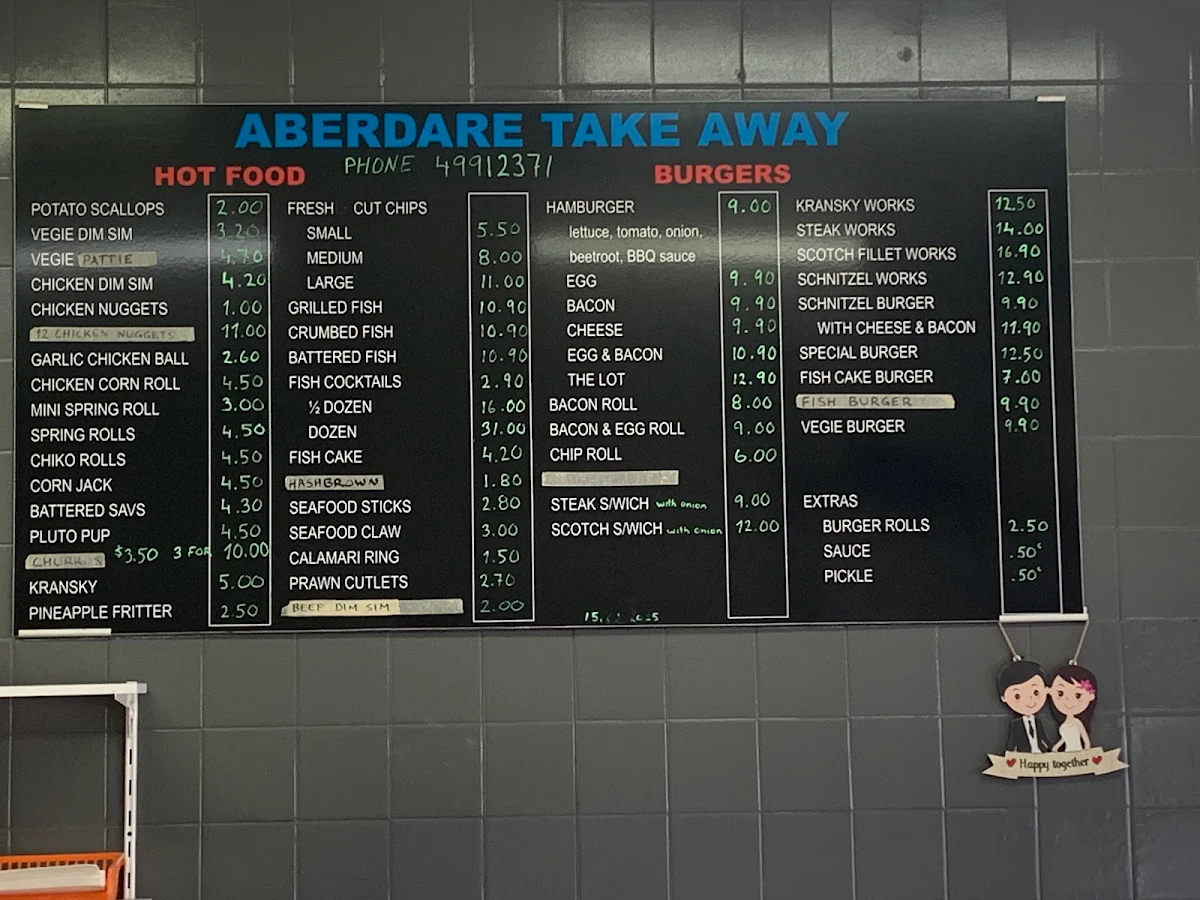 ABERDARE TAKE AWAY
PHONE 49912371
HOT FOOD
POTATO SCALLOPS 2.00
VEGIE DIM SIM 3.20
VEGIE PATTIE 4.70
CHICKEN DIM SIM 4.20
CHICKEN NUGGETS 1.00
12 CHICKEN NUGGETS 11.00
GARLIC CHICKEN BALL 2.60
CHICKEN CORN ROLL 4.50
MINI SPRING ROLL 3.00
SPRING ROLLS 4.50
CHIKO ROLLS 4.50
CORN JACK 4.50
BATTERED SAVS 4.30
PLUTO PUP 4.50
CHURROS $3.50 3 FOR 10.00
KRANSKY 5.00
PINEAPPLE FRITTER 2.50
FRESH CUT CHIPS
SMALL 5.50
MEDIUM 8.00
LARGE 11.00
GRILLED FISH 10.90
CRUMBED FISH 10.90
BATTERED FISH 10.90
FISH COCKTAILS 2.90
½ DOZEN 16.00
DOZEN 31.00
FISH CAKE 4.20
HASHBROWN 1.80
SEAFOOD STICKS 2.80
SEAFOOD CLAW 3.00
CALAMARI RING 1.50
PRAWN CUTLETS 2.70
BEEF DIM SIM 2.00
BURGERS
HAMBURGER 9.00
lettuce, tomato, onion,
beetroot, BBQ sauce
EGG 9.90
BACON 9.90
CHEESE 9.90
EGG & BACON 10.90
THE LOT 12.90
BACON ROLL 8.00
BACON & EGG ROLL 9.00
CHIP ROLL 6.00
STEAK S/WICH with onion 9.00
SCOTCH S/WICH with onion 12.00
KRANSKY WORKS 12.50
STEAK WORKS 14.00
SCOTCH FILLET WORKS 16.90
SCHNITZEL WORKS 12.90
SCHNITZEL BURGER 9.90
WITH CHEESE & BACON 11.90
SPECIAL BURGER 12.50
FISH CAKE BURGER 7.00
FISH BURGER 9.90
VEGIE BURGER 9.90
EXTRAS
BURGER ROLLS 2.50
SAUCE .50c
PICKLE .50c
Happy together